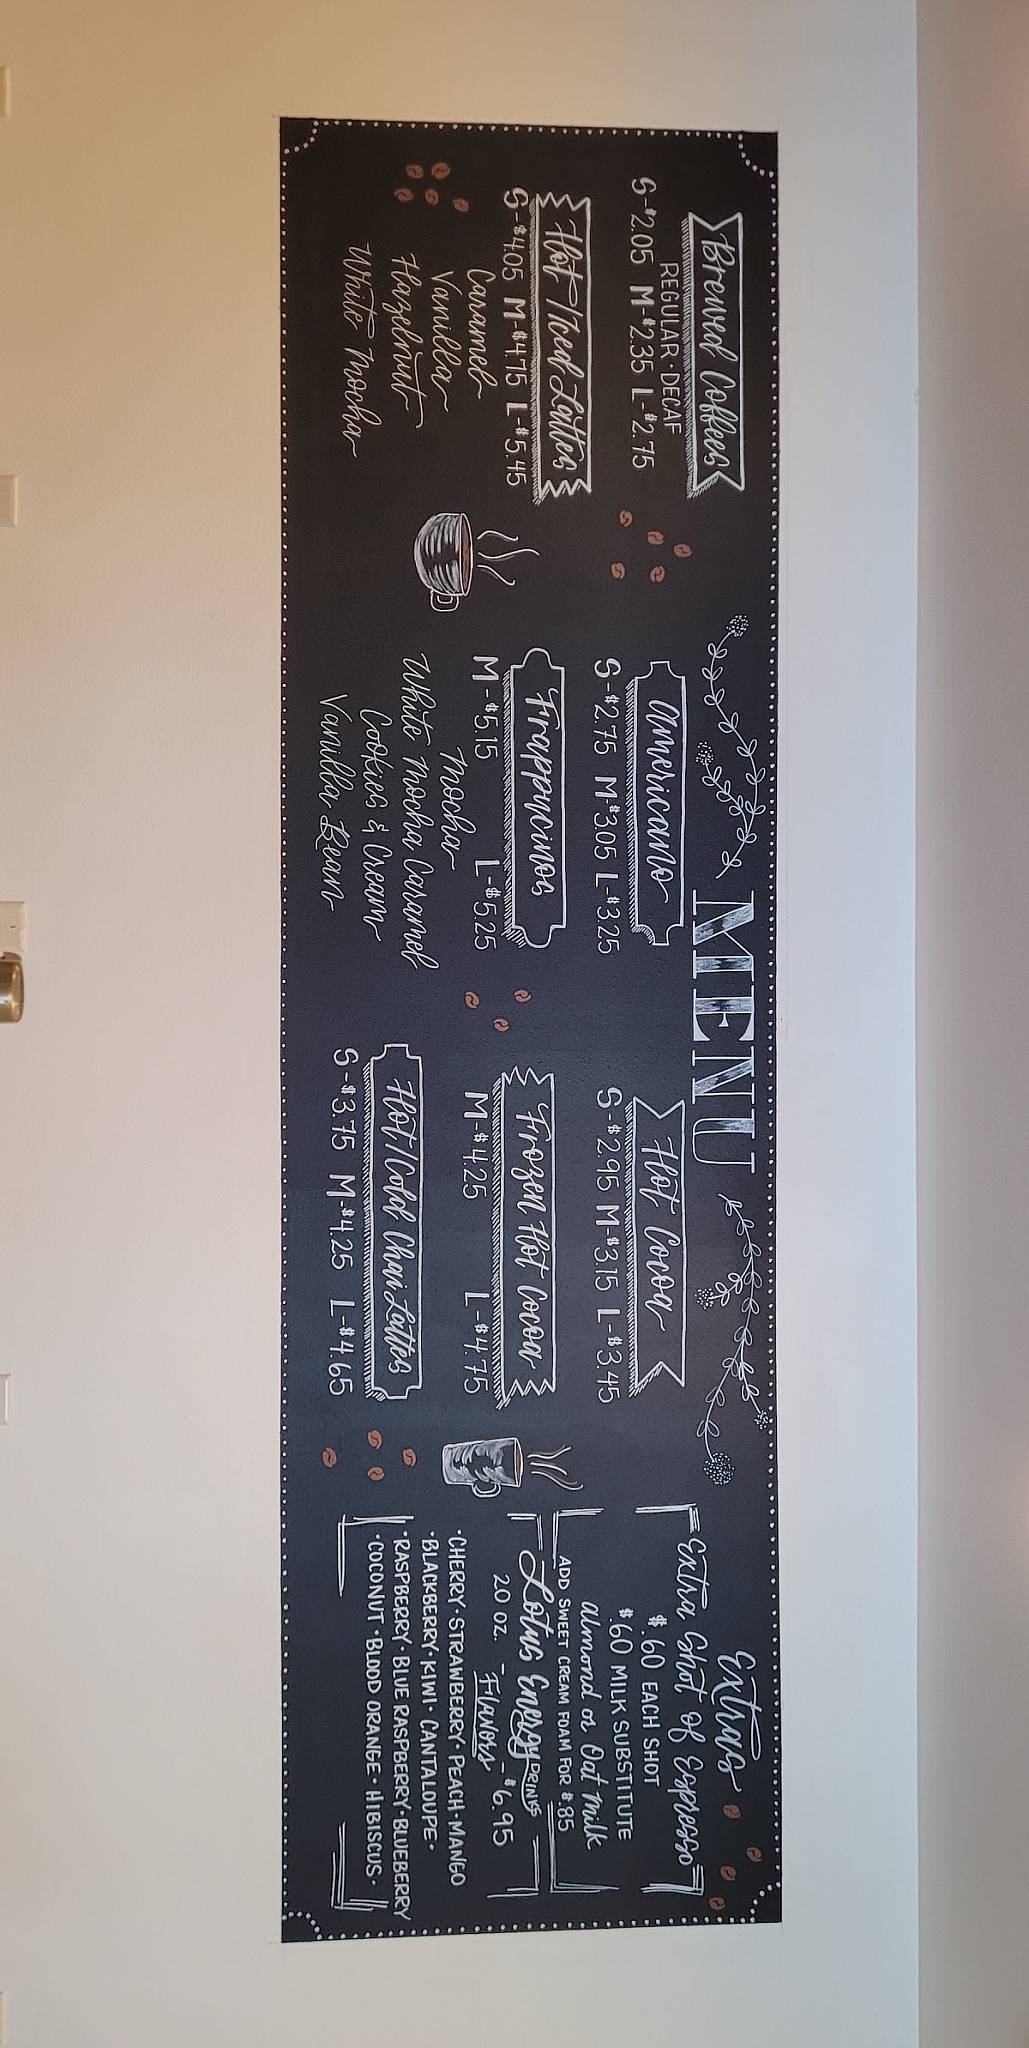 MENU
Brewed Coffees
REGULAR · DECAF
S-$2.05 M-$2.35 L-$2.75
Hot/Iced Lattes
S-$4.05 M-$4.75 L-$5.45
Caramel
Vanilla
Hazelnut
White Mocha
Americano
S-$2.75 M-$3.05 L-$3.25
Frappucinos
M-$5.15 L-$5.25
Mocha
White Mocha Caramel
Cookies & Cream
Vanilla Bean
Hot Cocoa
S-$2.95 M-$3.15 L-$3.45
Frozen Hot Cocoa
M-$4.25 L-$4.75
Hot/Cold Chai Lattes
S-$3.75 M-$4.25 L-$4.65
Extras
Extra Shot of Espresso
$.60 EACH SHOT
$.60 MILK SUBSTITUTE
Almond or Oat Milk
ADD SWEET CREAM FOAM FOR $.85
Lotus Energy DRINKS
20 OZ. - Flavors - $6.95
·CHERRY·STRAWBERRY·PEACH·MANGO
·BLACKBERRY·KIWI·CANTALOUPE·
·RASPBERRY·BLUE RASPBERRY·BLUEBERRY
·COCONUT·BLOOD ORANGE·HIBISCUS·